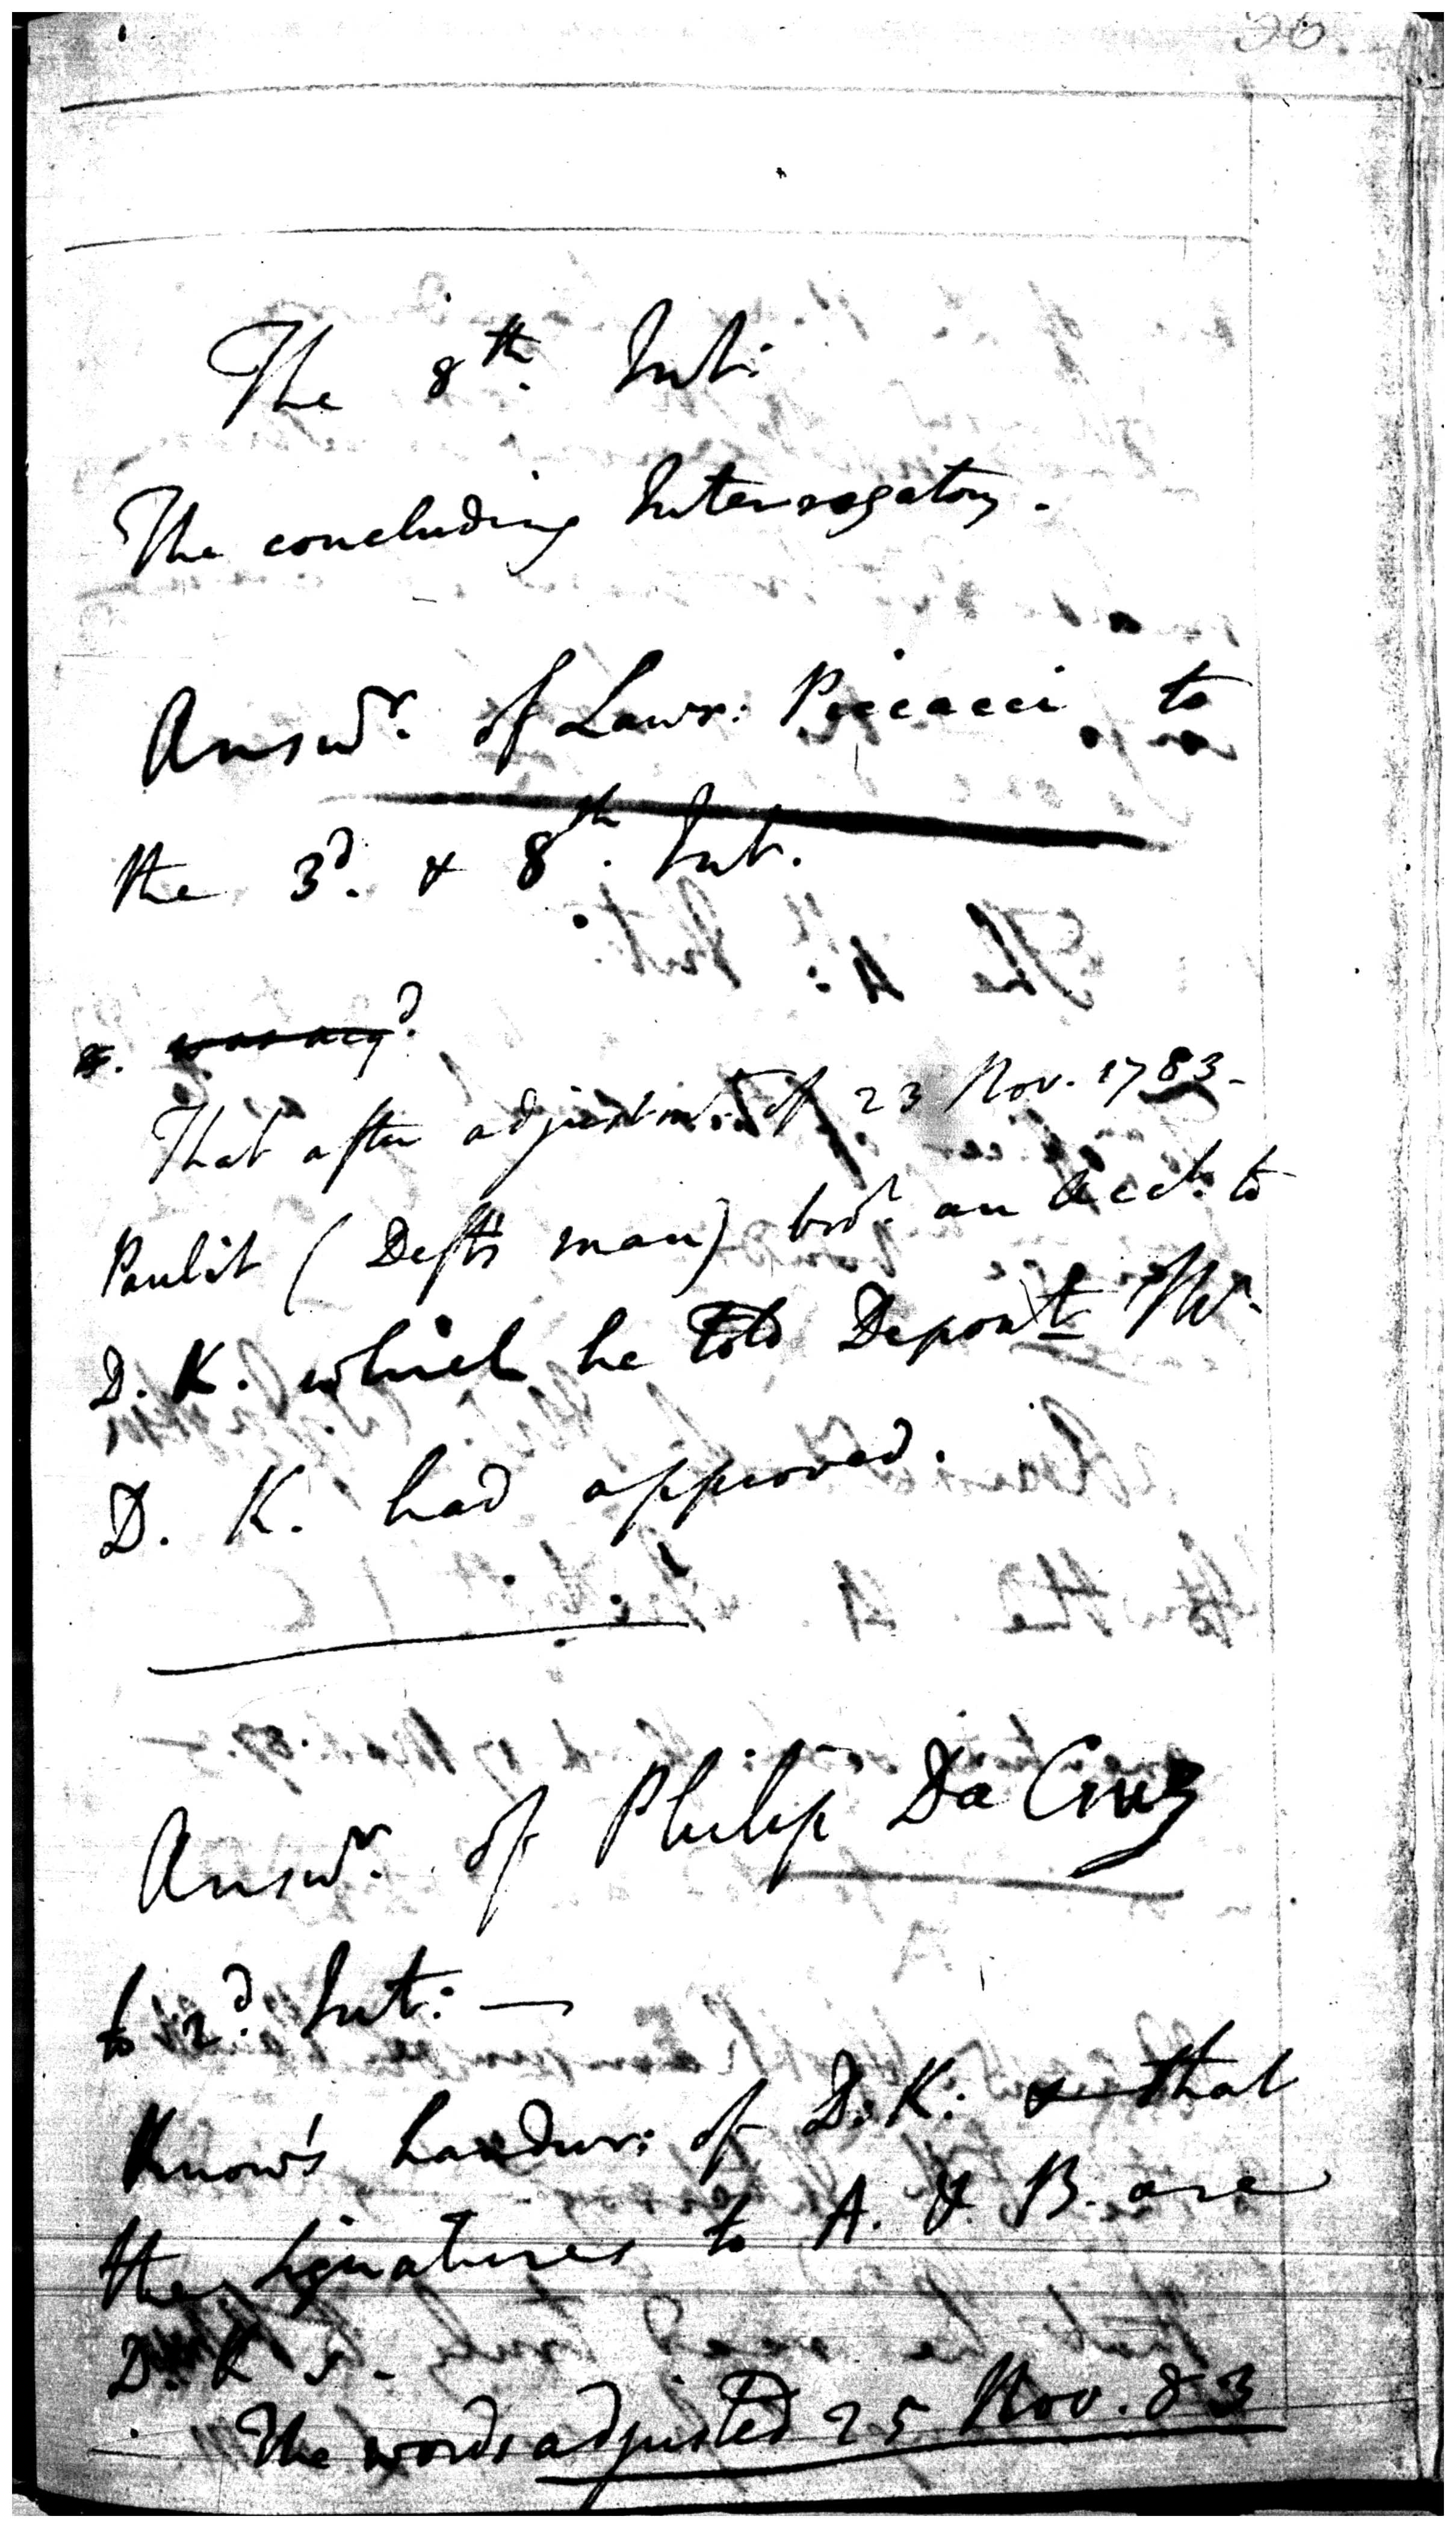 36.
The 8th. Int:
The concluding Interrogatory.
Answr. of Lawr: Piccacci to
the 3d. & 8th. Int.
That after adjustmt. of 23 Nov. 1783 -
Paulit (Deft's man) brot. an acct. to
D. K. which he told Depont Mr.
D. K. had approved.
Answr. of Philip Da Cruz
to 2d. Int: —
Know's handwr: of D. K: & that
the signatures to A. & B. are
D. K's -
The words adjusted 25 Nov. 83